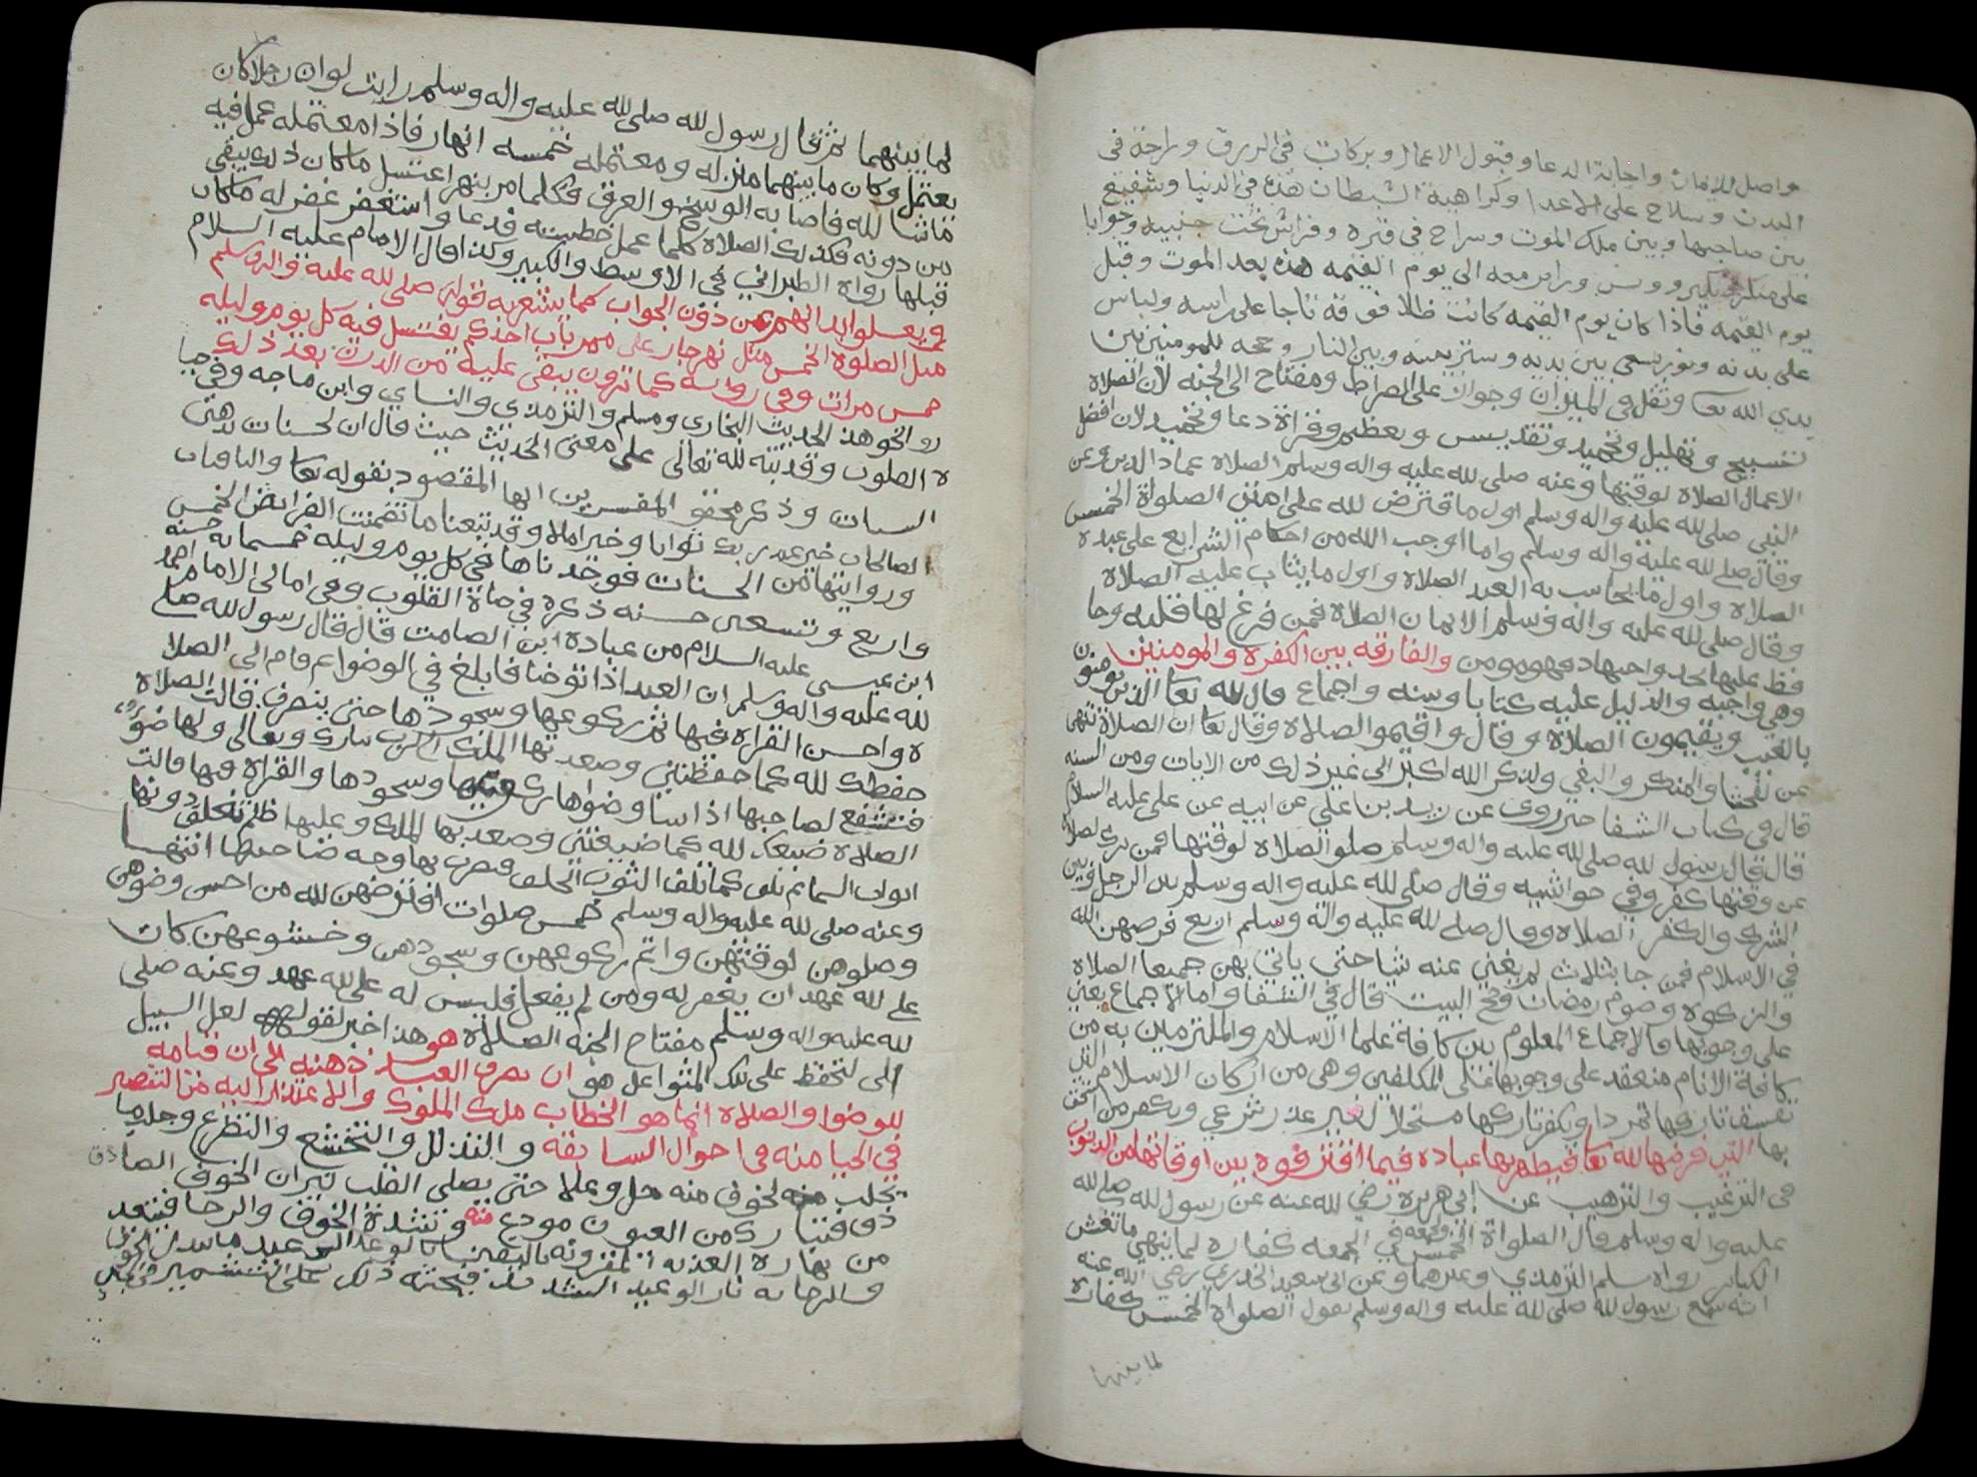 واصل للايمان واجابة الدعا وقبول الاعمال وبركات في الرزق وراحة في
البدن وسلاح على الاعدا وكراهية الشيطان هذه في الدنيا وشفيع
بين صاحبها وبين ملك الموت وسراج في قبره وفراش تحت جنبيه وجوابا
على منكر ونكير ومونس وزاير معه الى يوم القيمه هذه بعد الموت وقبل
يوم القيمه فاذا كان يوم القيمه كانت ظلا فوقه تاجا على راسه ولباس
على بدنه ونور يسعى بين يديه وستر بينه وبين النار وحجه للمومنين بين
يدي الله تعا وثقل في الميزان وجواز على الصراط ومفتاح الى الجنه لان الصلاة
تسبيح وتهليل وتحميد وتقديس وتعظيم وقراة دعا وتحميد لان افضل
الاعمال الصلاة لوقتها وعنه صلى لله عليه واله وسلم الصلاة عماد الدين وعن
النبي صلى لله عليه واله وسلم اول ما افترض لله على امتي الصلواة الخمس
وقال صلى لله عليه واله وسلم واما اوجب الله من احكام الشرايع على عبده
الصلاة واول ما يحاسب به العبد الصلاة واول ما يثاب عليه الصلاة
وقال صلى لله عليه واله وسلم الايمان الصلاة فمن فرغ لها قلبه وحا
فظ عليها بحد واحبها د فهو مومن والفارقه بين الكفره والمومنين
وهي واجبه والدليل عليه كتابا وسنه واجماع قال لله تعا الذين يومنون
بالغيب ويقيمون الصلاة وقال واقيموا الصلاة وقال تعا ان الصلاة تنهى
عن الفحشا والمنكر والبغي ولذكر الله اكبر الى غير ذلك من الايات ومن السنه
قال في كتاب الشفا خبر روي عن زيد بن علي عن ابيه عن علي عليه السلام
قال قال رسول لله صلى لله عليه واله وسلم صلوا الصلاة لوقتها فمن ترك لصلاة
عن وقتها كفر وفي حواشيه وقال صلى لله عليه واله وسلم بين الرجل وبين
الشرك والكفر الصلاة وقال صلى لله عليه واله وسلم اربع فرضهن الله
في الاسلام فمن جا بثلاث لم يغني عنه شيا حتى ياتي بهن جميعا الصلاة
والزكوة وصوم رمضان وحج البيت قال في الشفا واما الاجماع يعني
على وجوبها فالاجماع المعلوم بين كافة علما الاسلام والملتزمين به من
كافة الانام منعقد على وجوبها على المكلفين وهي من اركان الاسلام التي
يفسق تاركها تمردا ويكفر تاركها مستحلا لغير عذر شرعي ويكفر من استخف
بها التي فرضها لله تعا فيطهر بها عباده فيما اقترفوه بين اوقاتها من الذنوب
في الترغيب والترهيب عن ابي هريرة رضي لله عنه عن رسول لله صلى لله
عليه واله وسلم قال الصلواة الخمس والجمعه في الجمعه كفارة لما بينهن ما تغش
الكباير رواه مسلم الترمذي وغيرهما وعن ابي سعيد الخدري رضي الله عنه
انه سمع رسول لله صلى لله عليه واله وسلم يقول الصلواة الخمس كفارة
لما بينها
لما بينهما ثم قال رسول لله صلى لله عليه واله وسلم رايت لو ان رجلا كان
يعتمل وكان ما بينهما منزله ومعتمله خمسه انهار فاذا معتمله عمل فيه
ما شا لله فاصابه الوسخ والعرق فكلما مر بنهر اغتسل ما كان ذلك يبقي
من دونه فكذلك الصلاة كلما عمل خطيئة فدعا واستغفر غفر له ما كان
قبلها رواه الطبراني في الاوسط والكبير وكذا قال الامام عليه السلام
ويغسلوا بها انهم من ذوي الجواب كما يشعر به قوله صلى لله عليه واله وسلم
مثل الصلوة الخمس مثل نهر جار على نهر باب احدكم يغتسل فيه كل يوم وليله
خمس مرات وفي رواية كما ترون يبقى عليه من الدرن بعد ذلك
روا نحو هذا الحديث البخاري ومسلم والترمذي والنساي وابن ماجه وفي حيا
ة القلوب وقد نبه لله تعالى على معنى الحديث حيث قال ان الحسنات يذهبن
السيات وذكر محققوا المفسرين انها المقصود بقوله تعا والباقيات
الصالحات خير عند ربك ثوابا وخير املا وقد تتبعنا ما تضمنت الفرائض الخمس
ورواتبها من الحسنات فوجدناها في كل يوم وليله خمسمايه حسنه
واربع وتسعين حسنه ذكره في حياة القلوب وفي امالي الامام احمد
ابن عيسى عليه السلام من عبادة ابن الصامت قال قال رسول لله صلى
لله عليه واله وسلم ان العبد اذا توضا فابلغ في الوضوا ثم قام الى الصلا
ة واحسن القراه فيها ثم ركوعها وسجودها حتى ينصرف قالت الصلاة
حفظك لله كما حفظتني وصعد بها الملك الى الرب تبارك وتعالى ولها ضوء
فتشفع لصاحبها اذا اسا وضواها ركوعها وسجودها والقراة فيها قالت
الصلاة ضيعك لله كما ضيعتني وصعد بها الملك وعليها ظلمة تغلق دونها
ابواب السما ثم تلف كما تلف الثوب الخلف فضرب بها وجه صاحبها انتهـا
وعنه صلى لله عليه واله وسلم خمس صلوات افترضهن لله من احسن وضوهن
وصلوهن لوقتهن واتم ركوعهن وسجودهن وخشوعهن كان
على لله عهد ان يغفر له ومن لم يفعل فليس له على لله عهد وعنه صلى
لله عليه واله وسلم مفتاح الجنه الصلاة هو هذا خبر لقوله لعل السبيل
الى لتحفظ على تلك المثوا عل هو ان يصرف العبد ذهنه الى ان قيامه
للوضوا والصلاة انما هو الخطاب ملك الملوك والاعتذار اليه من التقصير
في الحيا منه في احوال السابقه والتذلل والتخشع والتضرع وجل ما
يجلب لخوف منه جل وعلا حتى يصلى القلب نيران الخوف الصادق
ذق فتبارك من العيون مودع منه وتشدة الخوف والرجا
من
والرجا به نار الوعيد الشديد فيحثه ذلك على التشمير في